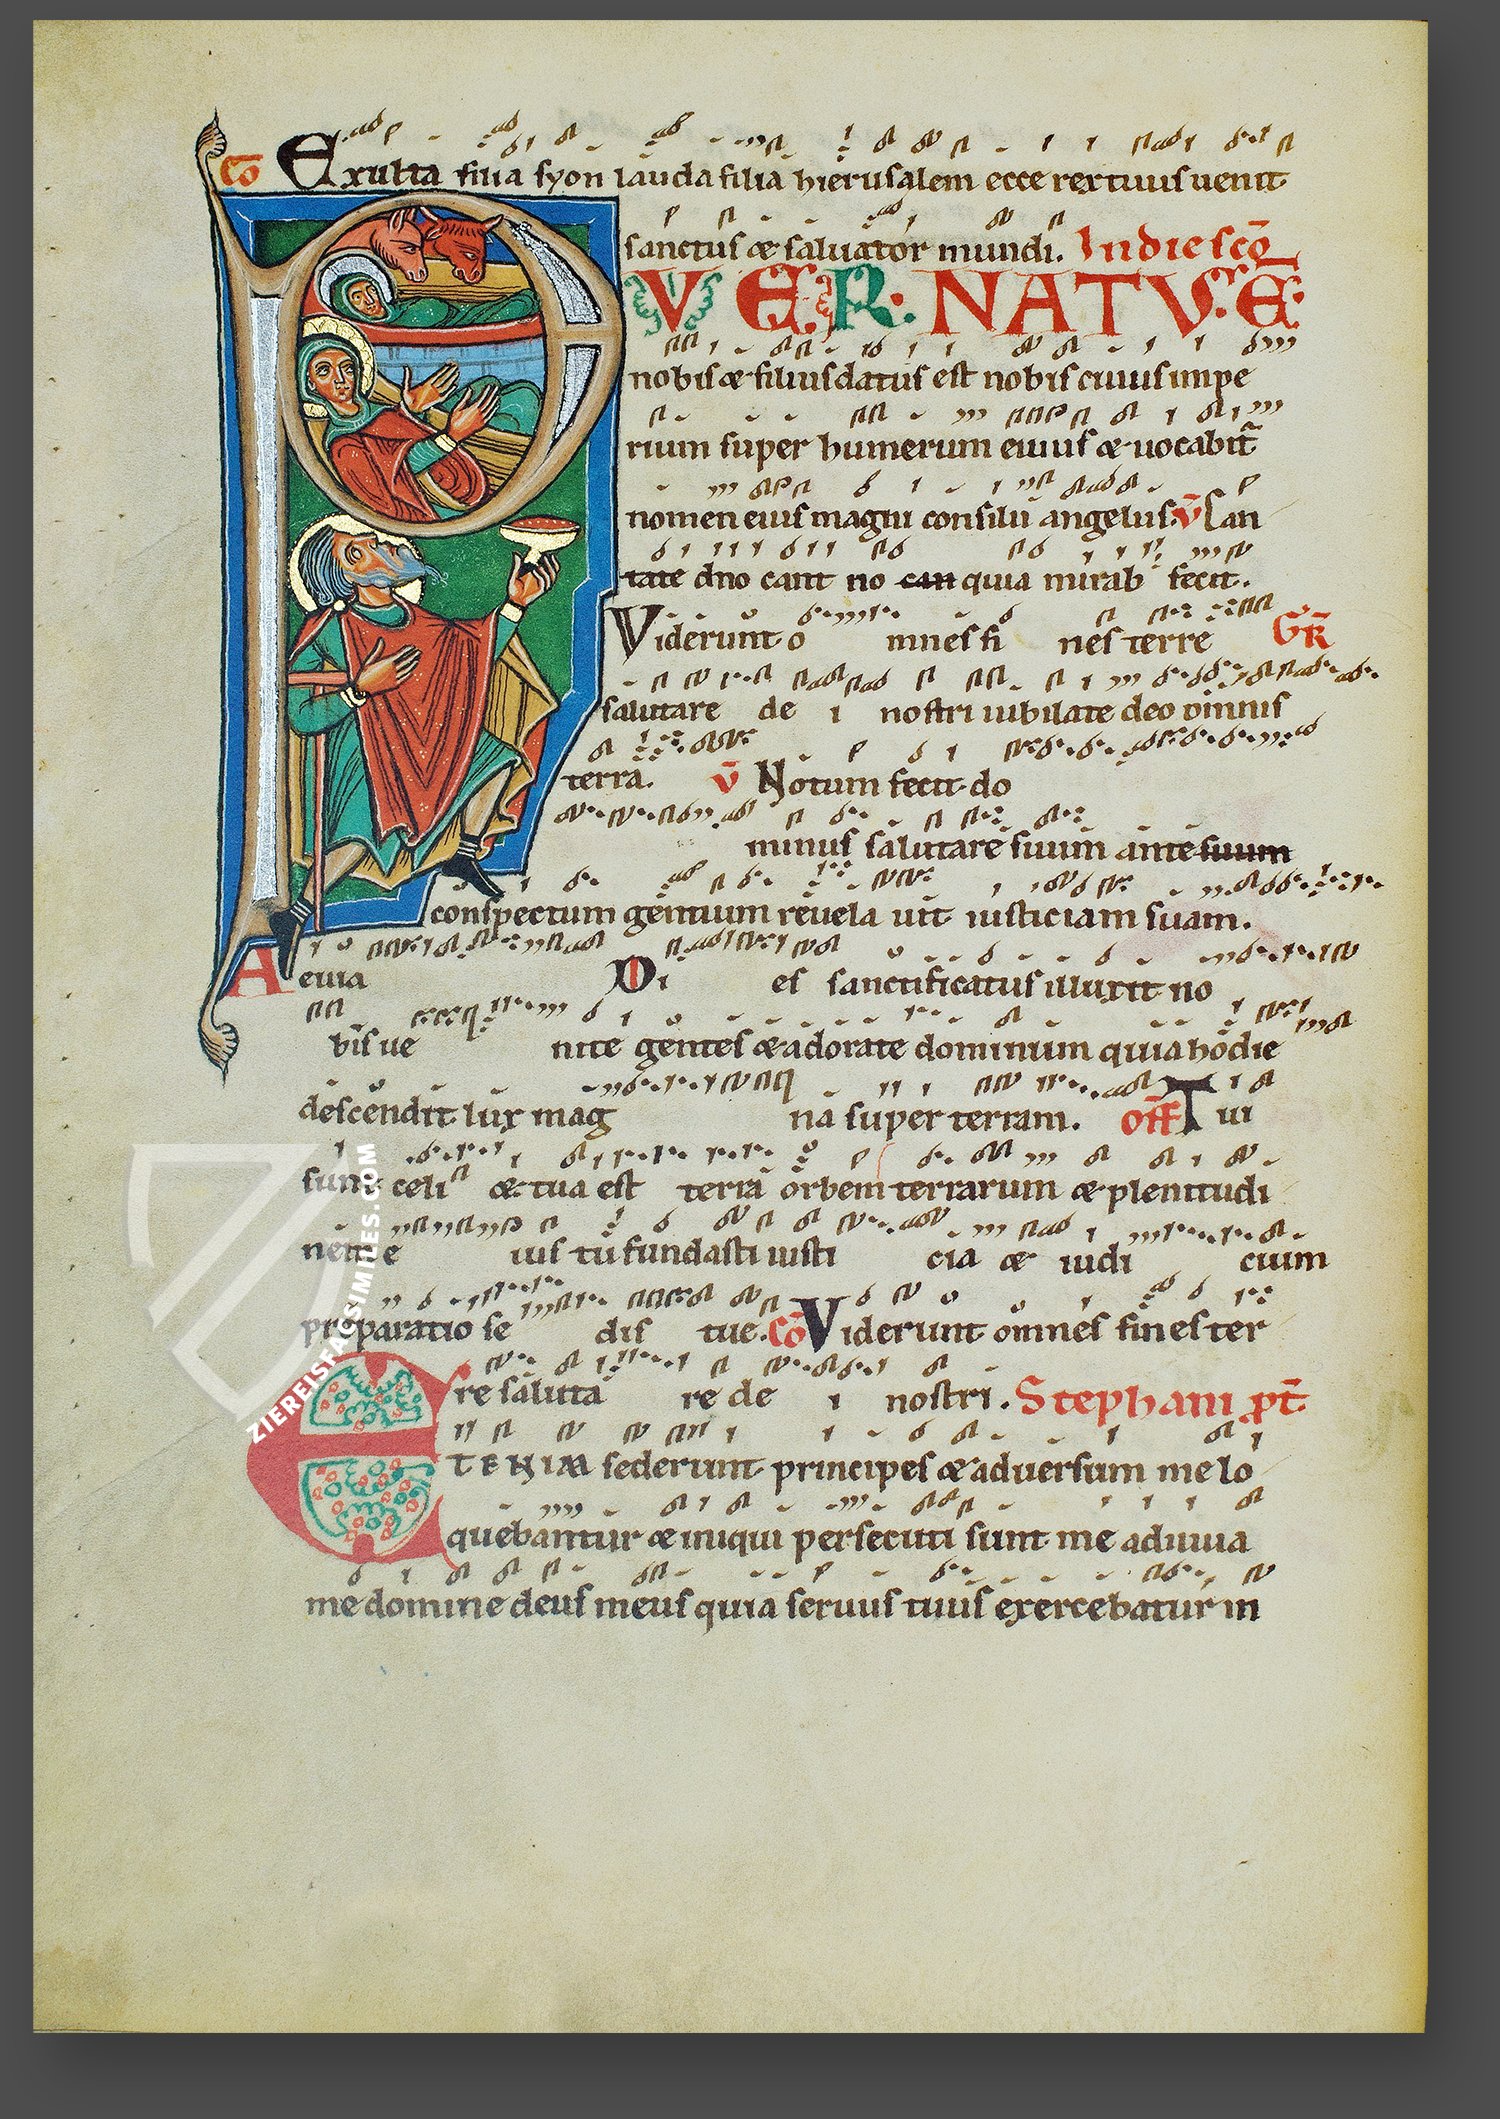 Cō Exulta filia syon lauda filia hierusalem ecce rex tuus uenit
sanctus & saluator mundi. In die scō
PVER: NATVS. E:
nobis & filius datus est nobis cuius impe
rium super humerum eiuus & uocabit̄
nomen eius magni consilii angelus. v̄ Can
tate dno cant no can quia mirab fecit.
Viderunt o mnes fi nes terre GR̄
salutare de i nostri iubilate deo omnis
terra. v̄ Notum fecit do
minus salutare suum ante suum
conspectum gentium reuela uit iusticiam suam.
Aeuia Di es sanctificatus illuxit no
bis ue nite gentes & adorate dominum quia hodie
descendit lux mag na super terram. off̄ Tui
sunt celi & tua est terra orbem terrarum & plenitudi
nem e ius tu fundasti iusti cia & iudi cium
preparatio se dis tue. Cō Viderunt omnes fines ter
re saluta re de i nostri. Stephani pt̄
ETENIM sederunt principes & aduersum me lo
quebantur & iniqui persecuti sunt me adiuua
me domine deus meus quia seruus tuus exercebatur in
ZIEREISFACSIMILES.COM